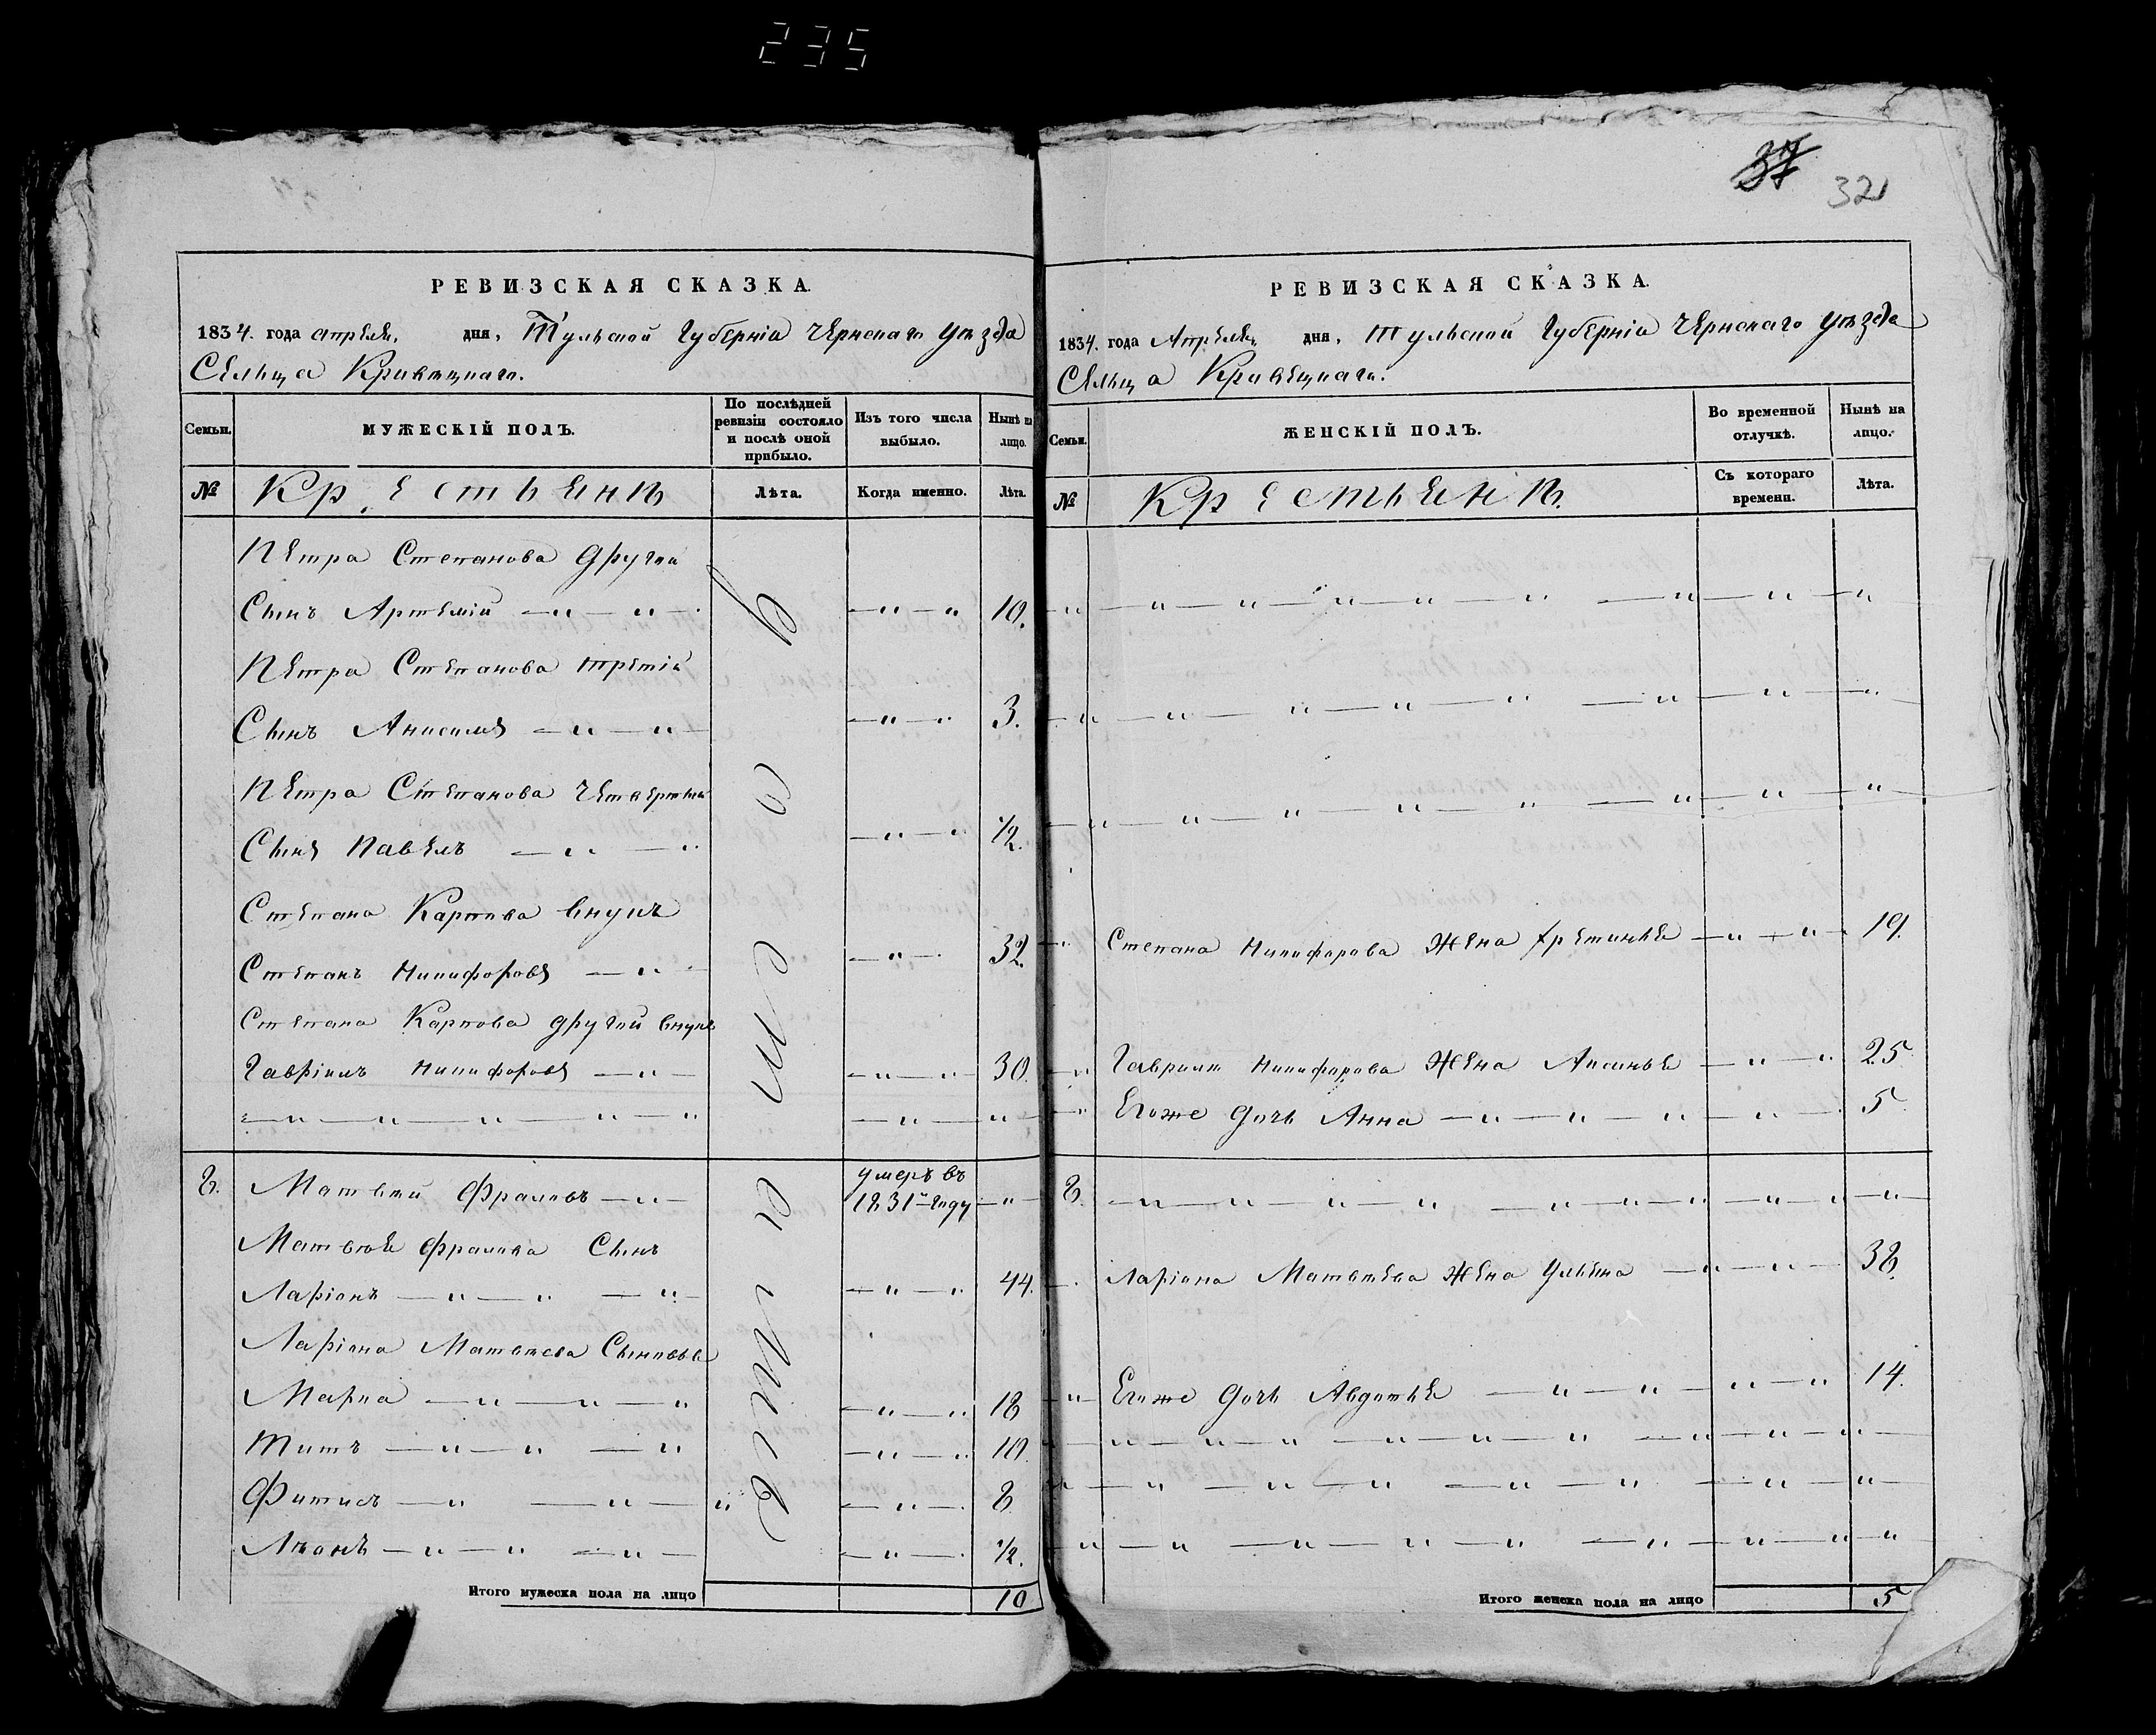 235
37 321
РЕВИЗСКАЯ СКАЗКА.
1834. года апреля, дня, Тульской Губернiи Чернскаго уѣзда
Сельца Кривецкаго.
Семьи.
МУЖЕСКIЙ ПОЛЪ.
По послѣдней ревизiи состояло и послѣ оной прибыло.
Изъ того числа выбыло.
Нынѣ на лицо.
№
Крестьянъ
Лѣта.
Когда именно.
Лѣта.
Петра Степанова другой
Сынъ Артемiй — " — " — " — " 10.
Петра Степанова третiй
Сынъ Анисимъ — " — " — " — " 3.
Петра Степанова четвертый
Сынъ Павелъ — " — " — " — " 1/2.
Степана Карпова внукъ
Степанъ Никифоровъ — " — — " — 32.
Степана Карпова другой внукъ
Гаврiилъ Никифоровъ — " — — " — " 30.
— " — " — " — " — " — " — "
8. Матвѣй Фроловъ — " — умеръ въ 1831м году — " —
Матвѣя Фролова Сынъ
Ларiонъ — " — " — " — " — " 44.
Ларiона Матвѣева Сыновья
Марка — " — " — " — " — " 18
Титъ — " — " — " — " — " 10.
Фитисъ — " — " — " — " — 8
Лѣонъ — " — " — " — " — 1/2.
Итого мужеска пола на лицо 10
РЕВИЗСКАЯ СКАЗКА.
1834. года Апреля, дня, Тульской Губернiи Чернскаго уѣзда
Сельца Кривецкаго.
Семьи.
ЖЕНСКIЙ ПОЛЪ.
Во временной отлучкѣ.
Нынѣ на лицо.
№
Крестьянъ.
Съ котораго времени.
Лѣта.
— " — " — " — " — " — " — " — " — "
— " — " — " — " — " — " — " — "
— " — " — " — " — " — " — " — "
— " Степана Никифорова Жена — " — " 19.
— " Гаврилы Никифорова Жена Аксинья — " — " 25
— " Егоже дочь Анна — " — " — " — " — 5.
8. — " — " — " — " — " — " — " — " — " — " —
— . Ларiона Матвѣева Жена Ульяна — " — " — 38.
— " Егоже дочь Авдотья — " — " — " — " 14.
— " — " — " — " — " — " — " — " — " —
" — " — " — " — " — " — " — " —
— " — " — " — " — " — " — " — " — "
Итого женска пола на лицо 5